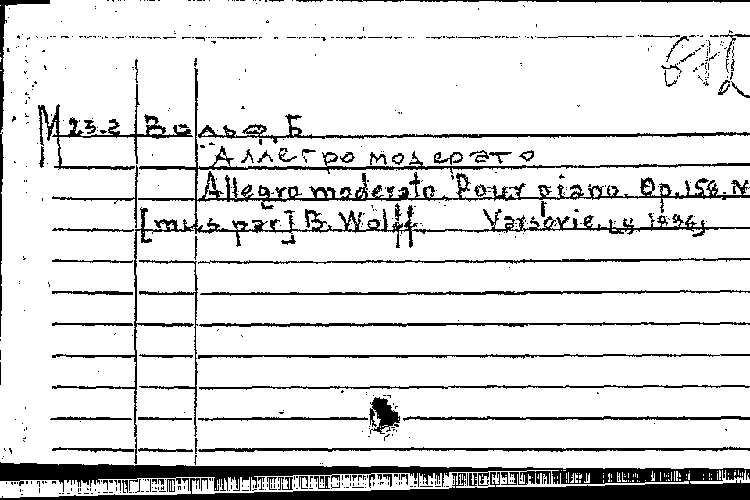 672
М 23.2 Вольф, Б.
Аллегро модерато
Allegro moderato. Pour piano. Op. 158. N
[mus par] B. Wolff. Varsovie,